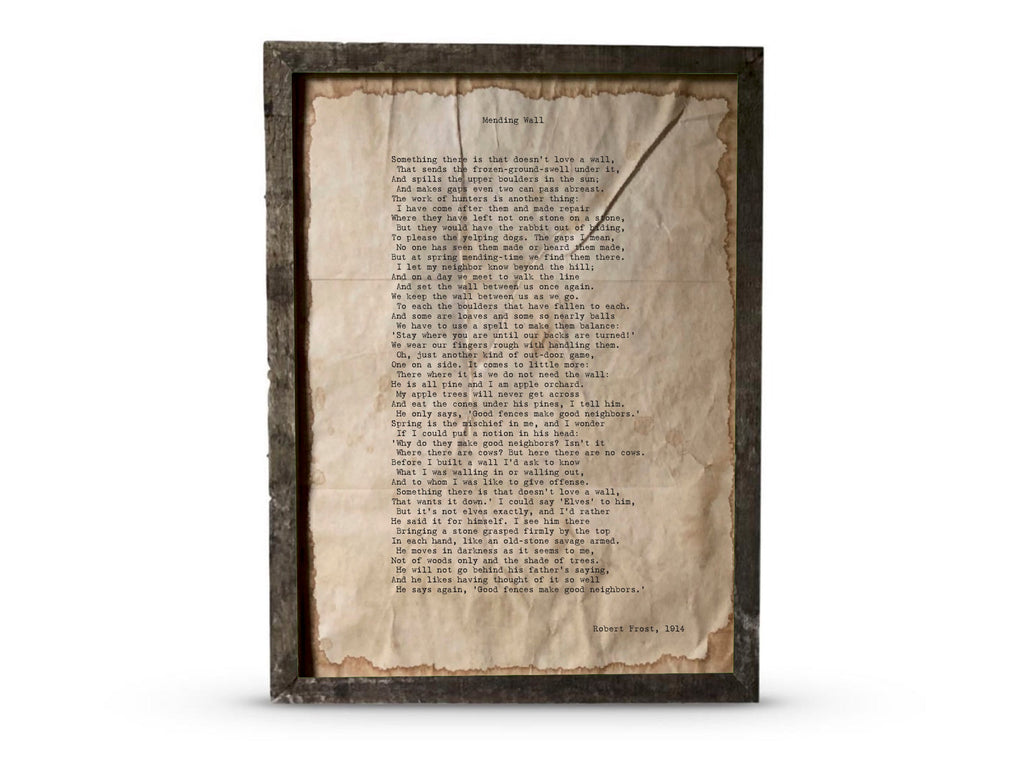 Mending Wall
Something there is that doesn't love a wall,
That sends the frozen-ground-swell under it,
And spills the upper boulders in the sun;
And makes gaps even two can pass abreast.
The work of hunters is another thing:
I have come after them and made repair
Where they have left not one stone on a stone,
But they would have the rabbit out of hiding,
To please the yelping dogs. The gaps I mean,
No one has seen them made or heard them made,
But at spring mending-time we find them there.
I let my neighbor know beyond the hill;
And on a day we meet to walk the line
And set the wall between us once again.
We keep the wall between us as we go.
To each the boulders that have fallen to each.
And some are loaves and some so nearly balls
We have to use a spell to make them balance:
'Stay where you are until our backs are turned!'
We wear our fingers rough with handling them.
Oh, just another kind of out-door game,
One on a side. It comes to little more:
There where it is we do not need the wall:
He is all pine and I am apple orchard.
My apple trees will never get across
And eat the cones under his pines, I tell him.
He only says, 'Good fences make good neighbors.'
Spring is the mischief in me, and I wonder
If I could put a notion in his head:
'Why do they make good neighbors? Isn't it
Where there are cows? But here there are no cows.
Before I built a wall I'd ask to know
What I was walling in or walling out,
And to whom I was like to give offense.
Something there is that doesn't love a wall,
That wants it down.' I could say 'Elves' to him,
But it's not elves exactly, and I'd rather
He said it for himself. I see him there
Bringing a stone grasped firmly by the top
In each hand, like an old-stone savage armed.
He moves in darkness as it seems to me,
Not of woods only and the shade of trees.
He will not go behind his father's saying,
And he likes having thought of it so well
He says again, 'Good fences make good neighbors.'
Robert Frost, 1914